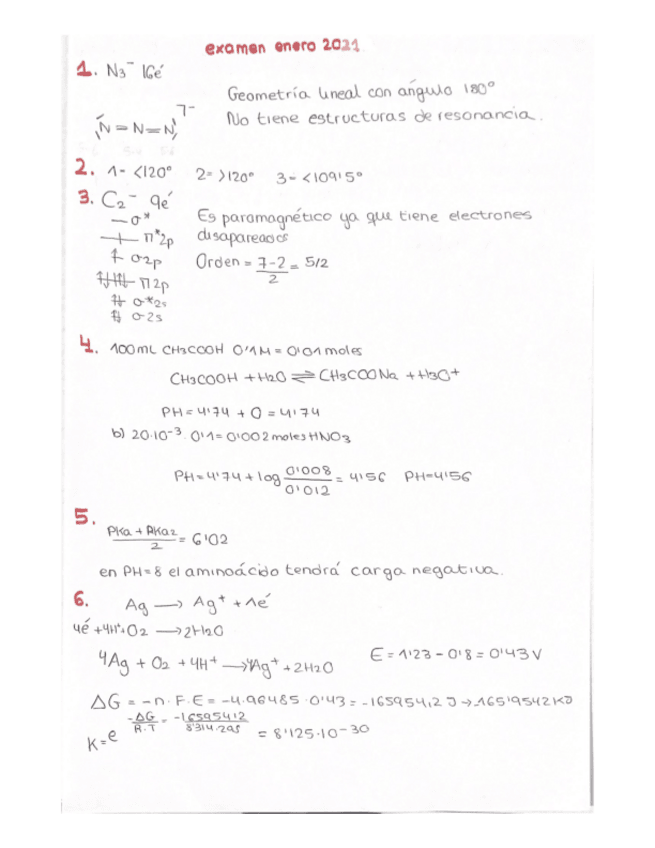 examen enero 2021
1. N3⁻ 16é
Geometría lineal con ángulo 180°
N=N=N ⁻
No tiene estructuras de resonancia.
2. 1- <120° 2= >120° 3- <109'5°
3. C2⁻ 9é
σ*
π*2p
σ2p
π2p
σ*2s
σ2s
Es paramagnético ya que tiene electrones
desapareados
Orden = 7-2/2 = 5/2
4. 100mL CH3COOH 0'1M = 0'01 moles
CH3COOH + H2O ⇌ CH3COONa + H3O+
PH = 4'74 + 0 = 4'74
b) 20·10⁻³ · 0'1 = 0'002 moles HNO3
PH = 4'74 + log 0'008/0'012 = 4'56 PH=4'56
5.
PKa + PKa2/2 = 6'02
en PH=8 el aminoácido tendrá carga negativa.
6. Ag → Ag⁺ + 1é
4é + 4H⁺ + O2 → 2H2O
4Ag + O2 + 4H⁺ → 4Ag⁺ + 2H2O
E = 1'23 - 0'8 = 0'43 V
ΔG = -n·F·E = -4·96485·0'43 = -165954,2 J → -165'9542 KJ
K = e -ΔG/R·T = -165954'2/8'314·298 = 8'125·10⁻³⁰